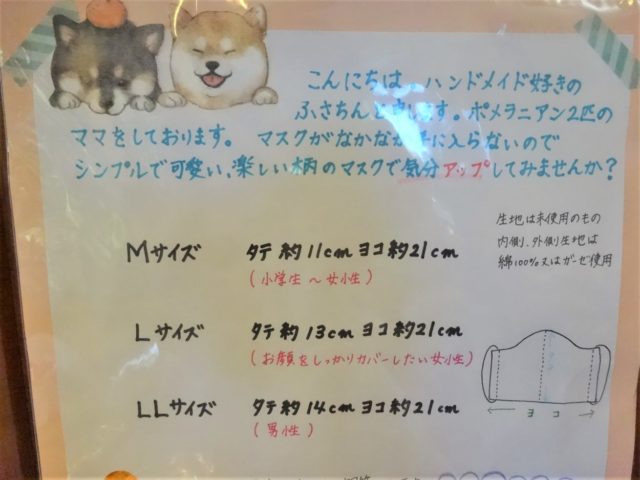 こんにちは。ハンドメイド好きの
ふさちんと申します。ポメラニアン2匹の
ママをしております。 マスクがなかなか手に入らないので
シンプルで可愛い、楽しい柄のマスクで気分アップしてみませんか?
生地は未使用のもの
内側、外側生地は
綿100%又はガーゼ使用
Mサイズ タテ約11cm ヨコ約21cm
(小学生〜女性)
Lサイズ タテ約13cm ヨコ約21cm
(お顔をしっかりカバーしたい女性)
LLサイズ タテ約14cm ヨコ約21cm
(男性)
タテ
ヨコ